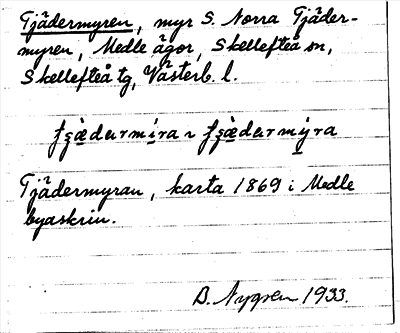 Tjädermyren, myr S. Norra Tjäder-
myren, Medle ägor, Skellefteå sn,
Skellefteå tg, Västerb. l.
Tjädermyran, karta 1869 i Medle
byaskrin.
B. Nygren 1933.